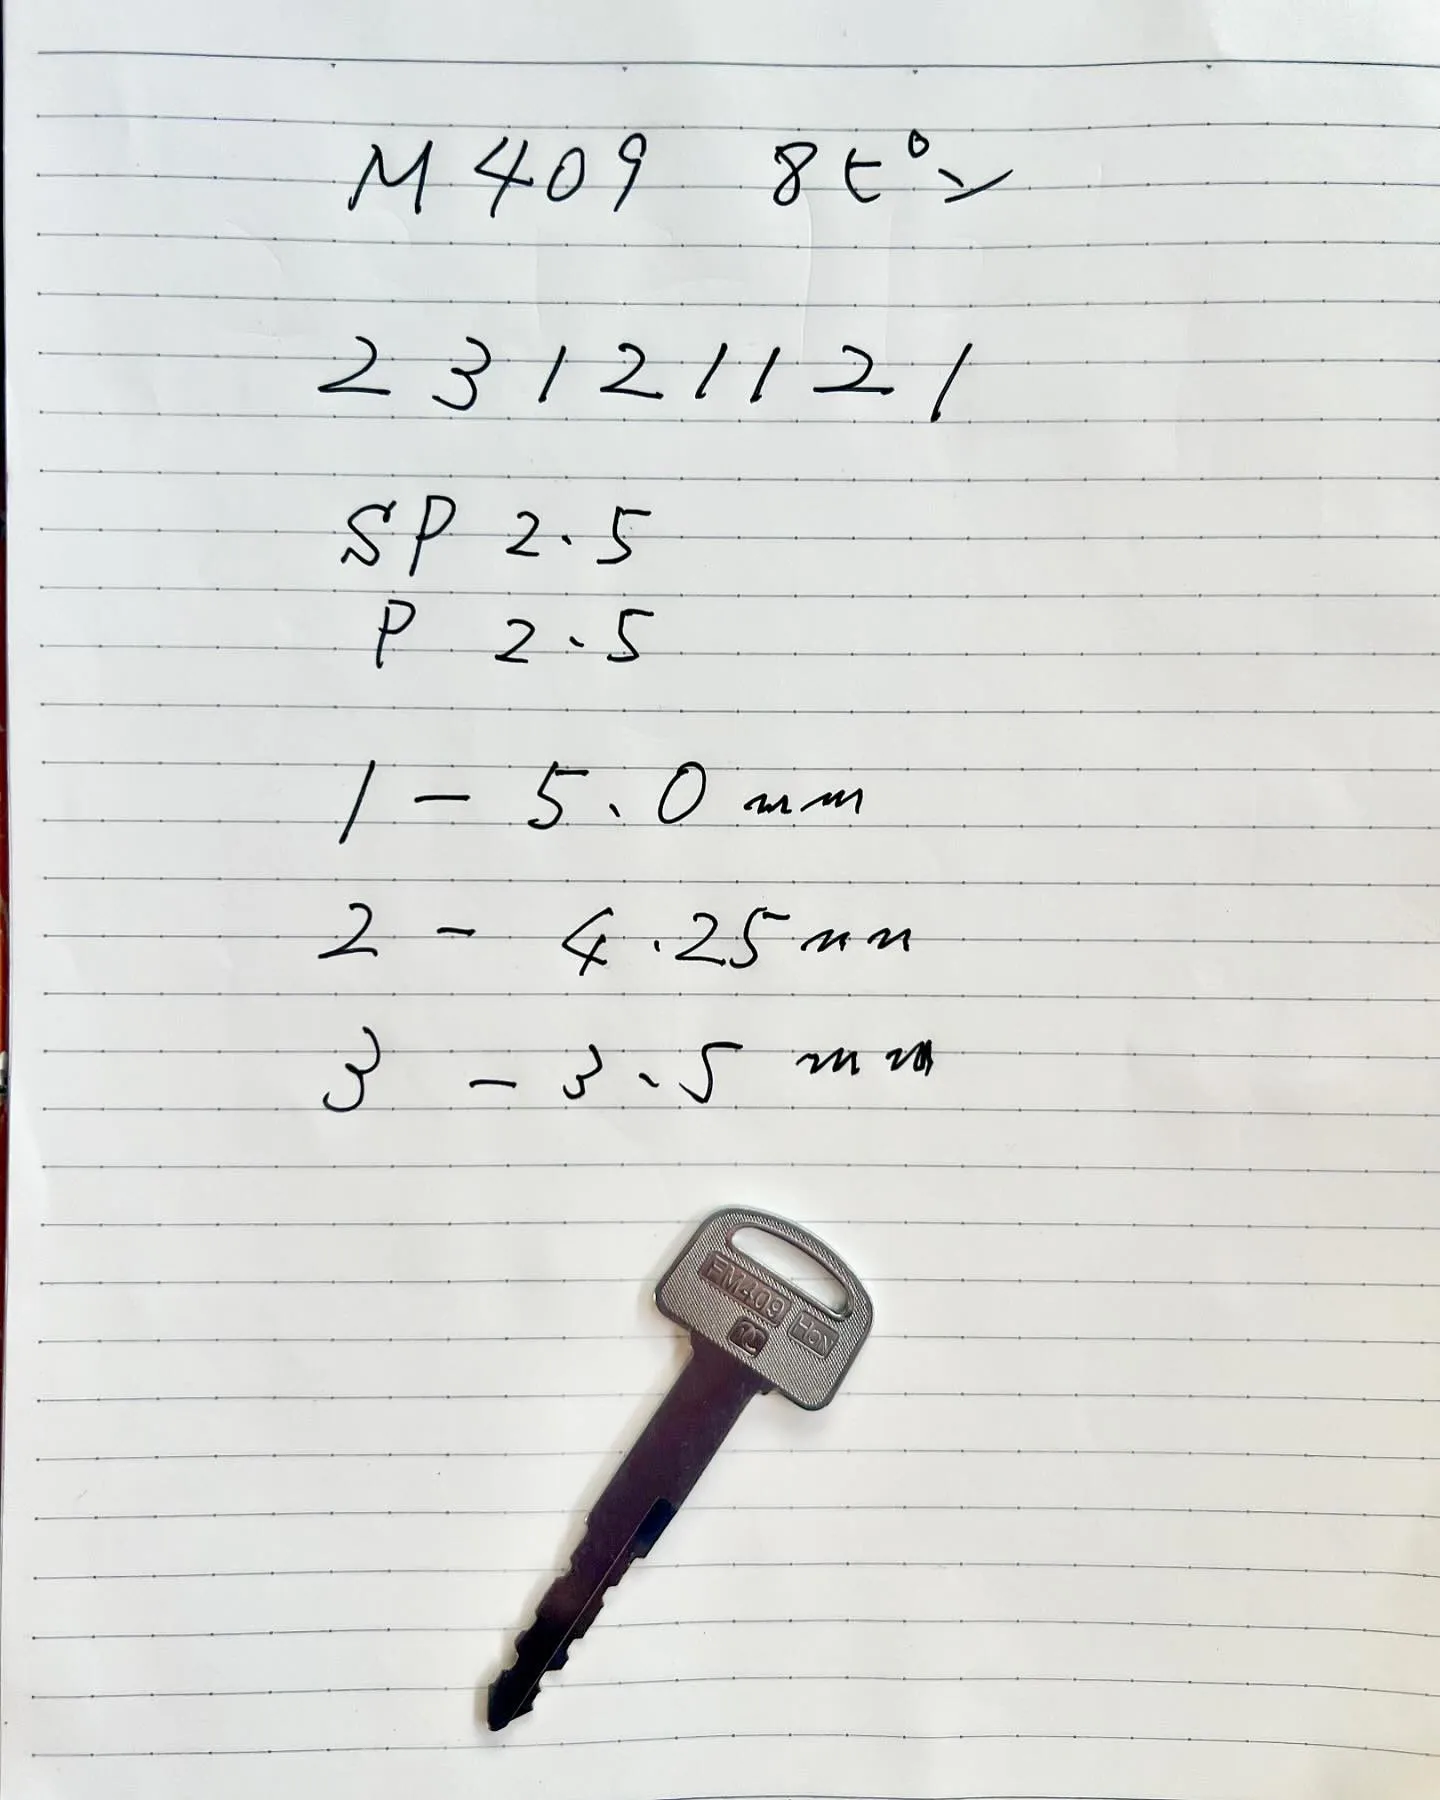 M409 8ピン
23121121
SP 2.5
P 2.5
1 - 5.0 mm
2 - 4.25 mm
3 - 3.5 mm
FM409
HON